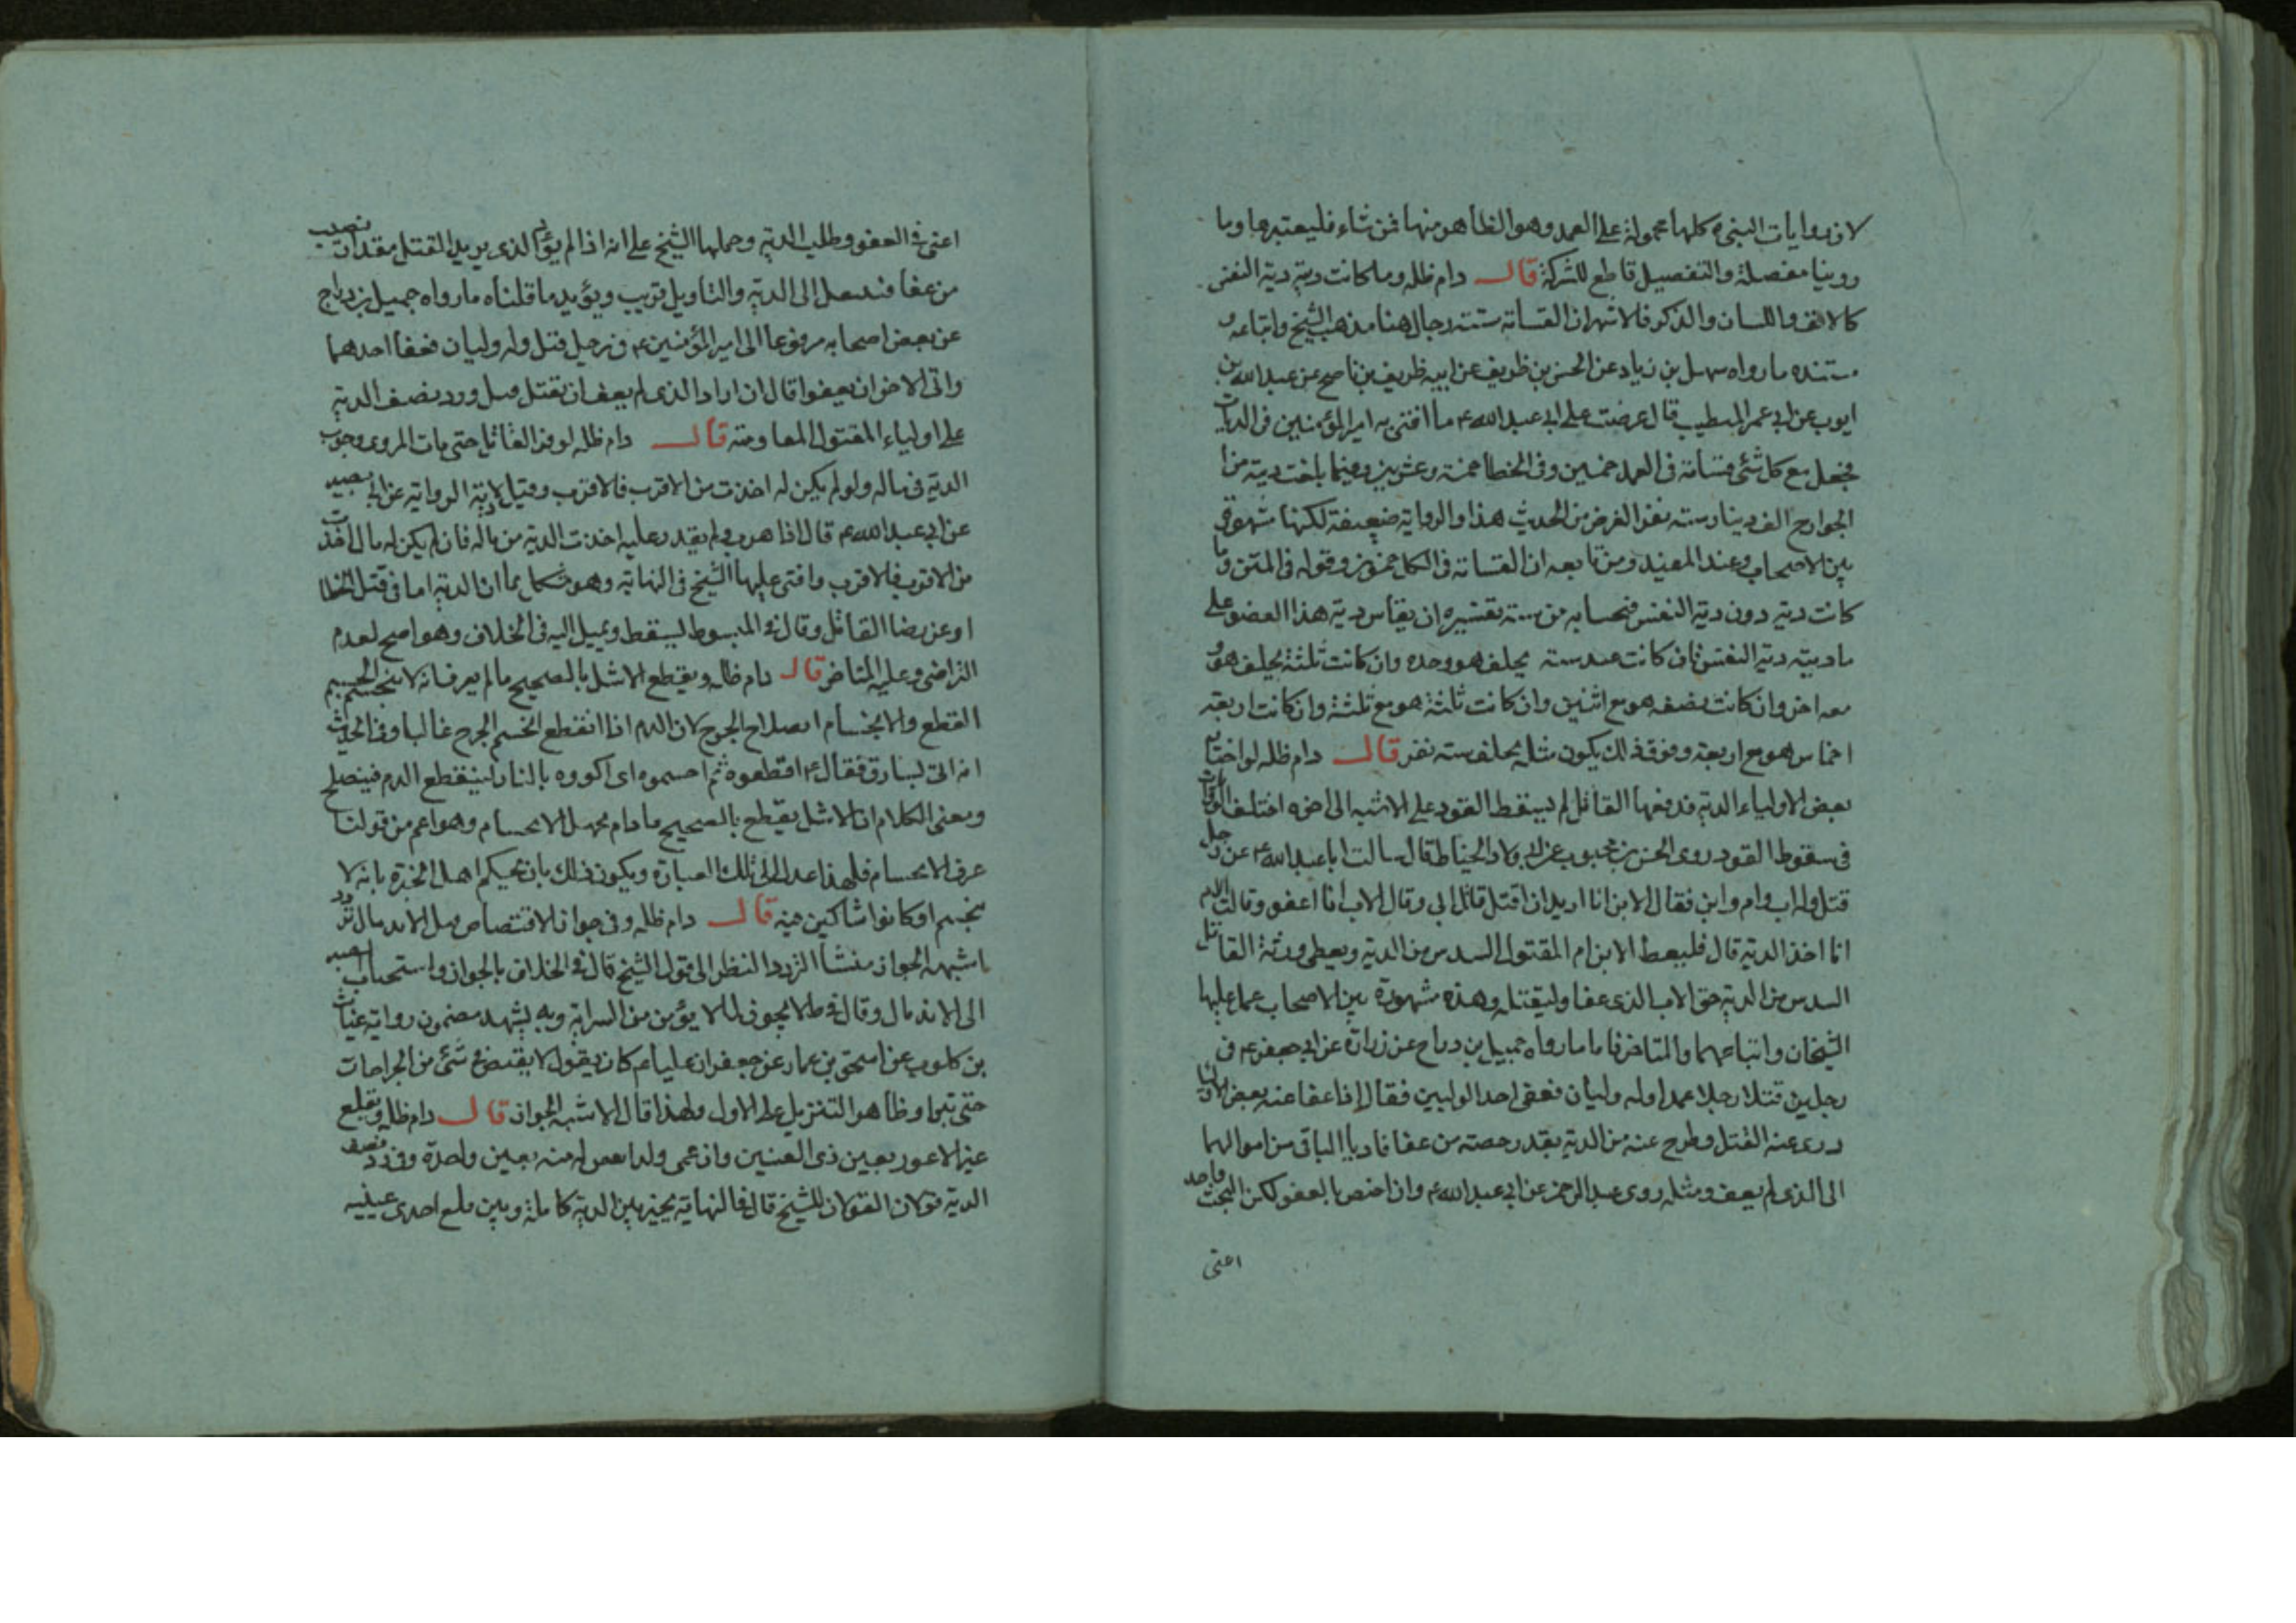 لان روايات النبى ص كلها محمولة على العمد وهو الظاهر منها فمن شاء فليعتبرها وما
روينا مفصلة والتفصيل قاطع للشركة قال دام ظله وما كانت ديته دية النفس
كالانف واللسان والذكر فالاشهر ان القسامة ستة رجال هنا مذهب الشيخ واتباعه و
مستنده ما رواه سهل بن زياد عن الحسن بن ظريف عن ابيه ظريف بن ناصح عن عبد الله بن
ايوب عن ابى عمر المتطبب قال عرضت على ابى عبد الله ع ما افتى به امير المؤمنين فى الديات
فجعل مع كل شئ قسامة فى العمد خمسين وفى الخطا خمسة وعشرين وفيما بلغت ديته من
الجوارح الف دينار ستة نفر الغرض من الحديث هذا والرواية ضعيفة لكنها مشهورة
بين الاصحاب وعند المفيد ومن تابعه ان القسامة فى الكل خمسون وقوله فى المتن وما
كانت ديته دون دية النفس فبحسابه من ستة تفسيره ان يقاس دية هذا العضو على
ما ديته دية النفس فان كانت سدسه يحلف هو وحده وان كانت ثلثه يحلف هو و
معه اخر وان كانت نصفه هو مع اثنين وان كانت ثلثه هو مع ثلثة وان كانت اربعة
اخماس هو مع اربعة وفوق ذلك يكون مثله يحلف ستة نفر قال دام ظله لو اختار
بعض الاولياء الدية فدفعها القاتل لم يسقط القود على الاشبه الى اخره اختلف الروايات
فى سقوط القود روى الحسن بن محبوب عن ابى ولاد الحناط قال سالت ابا عبد الله ع عن رجل
قتل وله اب وام وابن فقال الابن انا اريد ان اقتل قاتل ابى وقال الاب انا اعفو وقالت الام
انا اخذ الدية قال فليعط الابن ام المقتول السدس من الدية ويعطى ورثة القاتل
السدس من الدية حق الاب الذى عفا وليقتله وهذه مشهورة بين الاصحاب عمل عليها
الشيخان واتباعهما والمتاخر فاما ما رواه جميل بن دراج عن زرارة عن ابى جعفر ع فى
رجلين قتلا رجلا عمدا وله وليان فعفى احد الوليين فقال اذا عفا عنه بعض الاولياء
درئ عنه القتل وطرح عنه من الدية بقدر حصته من عفا فاديا الباقى من اموالهما
الى الذى لم يعف ومثله روى عبد الرحمن عن ابى عبد الله ع وان اختص بالعفو لكن البحث واحد
اعنى
اعنى فى العفو وطلب الدية وحملها الشيخ على انه اذا لم يؤد الذى يريد القتل مقدار نصيب
من عفا فيدعدل الى الدية والتاويل قريب ويؤيد ما قلناه ما رواه جميل بن دراج
عن بعض اصحابه مرفوعا الى امير المؤمنين ع فى رجل قتل وله وليان فعفا احدهما
وابى الاخر ان يعفوا قال ان اراد الذى لم يعف ان يقتل قتل ورد نصف الدية
على اولياء المقتول المقاد منه قال دام ظله لو فر القاتل حتى مات المروى وجوب
الدية فى ماله ولو لم يكن له اخذت من الاقرب فالاقرب وقيل لا دية الرواية عن ابى بصير
عن ابى عبد الله ع قال اذا هرب ولم يقدر عليه اخذت الدية من ماله فان لم يكن له مال اخذت
من الاقرب فالاقرب وافتى عليها الشيخ فى النهاية وهو مشكل بما ان الدية اما فى قتل الخطا
او عن رضا القاتل وقال فى المبسوط يسقط ويميل اليه فى الخلاف وهو اصح لعدم
التراضى وعليه المتاخر قال دام ظله ويقطع الاشل بالصحيح ما لم يعرف انه لا ينحسم الحسم
القطع والانحسام انصلاح الجرح لان الدم اذا انقطع انحسم الجرح غالبا وفى الحديث
انه اتى بسارق فقال ع اقطعوه ثم احسموه اى اكووه بالنار لينقطع الدم فينصلح
ومعنى الكلام ان الاشل يقطع بالصحيح ما دام مجهل الانحسام وهو اعم من قولنا
عرف الانحسام فلهذا عدل الى تلك العبارة ويكون ذلك بان يحكم اهل الخبرة بانه لا
ينحسم او كانوا شاكين فيه قال دام ظله وفى جواز الاقتصاص قبل الاندمال تردد
اشبهه الجواز منشأ التردد النظر الى قول الشيخ قال فى الخلاف بالجواز واستحباب الصبر
الى الاندمال وقال فى ط لا يجوز لما لا يؤمن من السراية وبه يشهد مضمون رواية غياث
بن كلوب عن اسحق بن عمار عن جعفر ان عليا ع كان يقول لا يقتص فى شئ من الجراحات
حتى تبرا وظاهر التنزيل على الاول ولهذا قال الاشبه الجواز قال دام ظله وتقلع
عين الاعور بعين ذى العينين وان عمى ولد يعمى له منه بعين واحدة وفى رد نصف
الدية قولان القولان للشيخ قال فى النهاية يخير بين الدية كاملة وبين قلع احدى عينيه